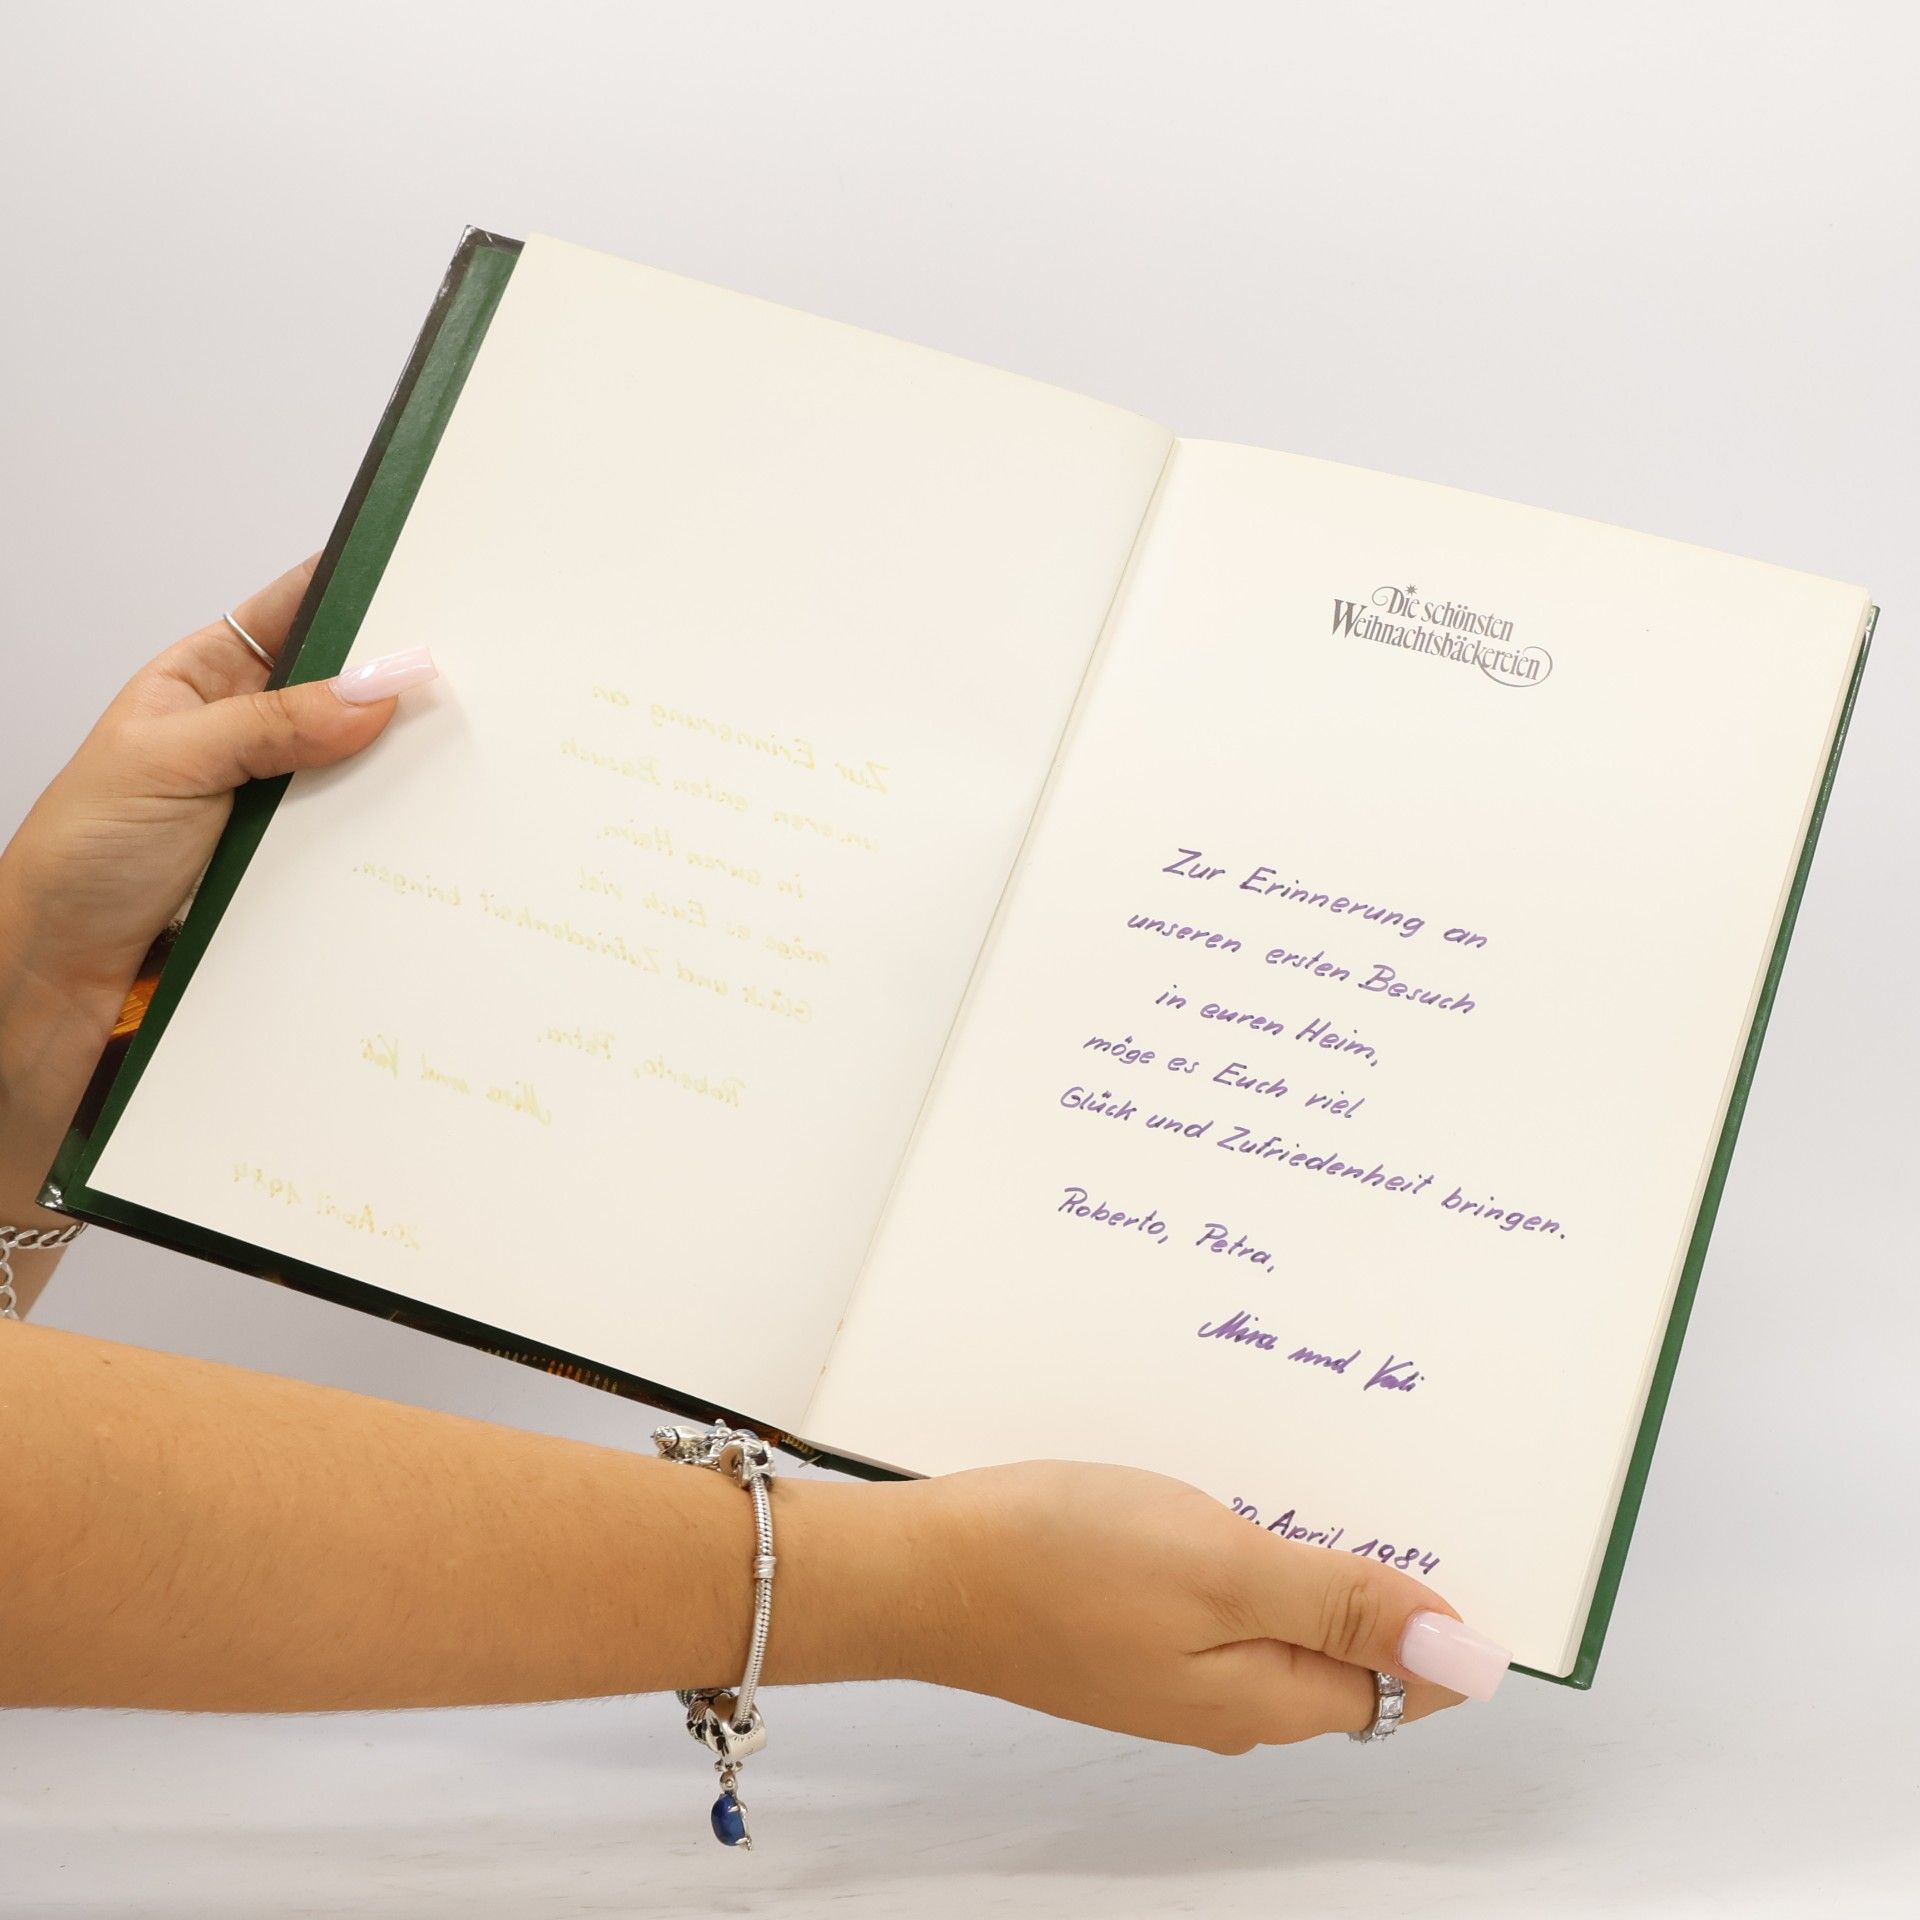 Die schönsten
Weihnachtsbäckereien
Zur Erinnerung an
unseren ersten Besuch
in euren Heim,
möge es Euch viel
Glück und Zufriedenheit bringen.
Roberto, Petra,
Mira und Vali
20. April 1984